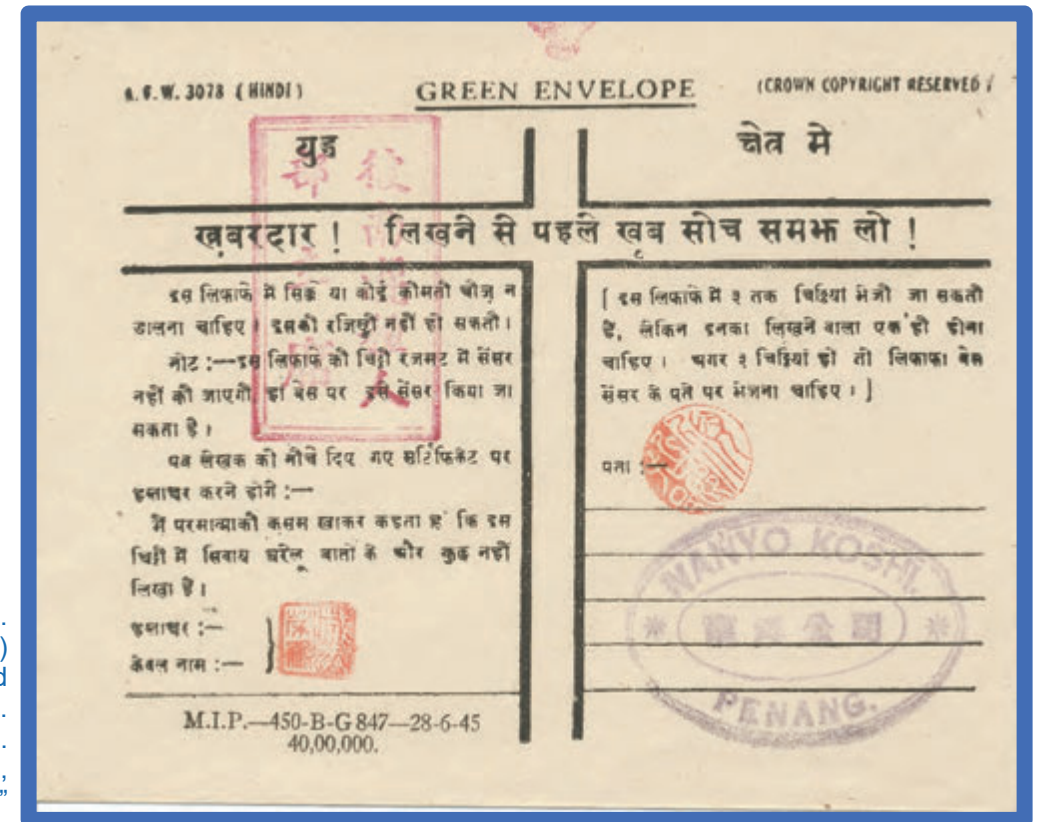 A. F. W. 3078 ( HINDI )
GREEN ENVELOPE
(CROWN COPYRIGHT RESERVED /
युद्ध
क्षेत्र मे
ख़बरदार ! लिखने से पहले खूब सोच समझ लो !
इस लिफाफे में सिक्के या कोई कीमती चीज़ न
डालना चाहिए । इसकी रजिष्ट्री नहीं हो सकती ।
नोट :—इस लिफाफे की चिट्ठी रजमट में सेंसर
नहीं की जाएगी, हां बेस पर इसे सेंसर किया जा
सकता है ।
पत्र लेखक को नीचे दिए गए सर्टिफिकेट पर
हस्ताक्षर करने होंगे :—
मैं परमात्मा की कसम खाकर कहता हूं कि इस
चिट्ठी में सिवाय घरेलू बातों के और कुछ नहीं
लिखा है ।
हस्ताक्षर :—
केवल नाम :—
M.I.P.—450-B-G 847—28-6-45
40,00,000.
[ इस लिफाफे में ३ तक चिट्ठियां भेजी जा सकती
हैं, लेकिन इनका लिखने वाला एक ही होना
चाहिए । अगर ३ चिट्ठियां हों तो लिफाफा बेस
सेंसर के पते पर भेजना चाहिए । ]
पता :—
NANYO KOSHI.
公司
PENANG.